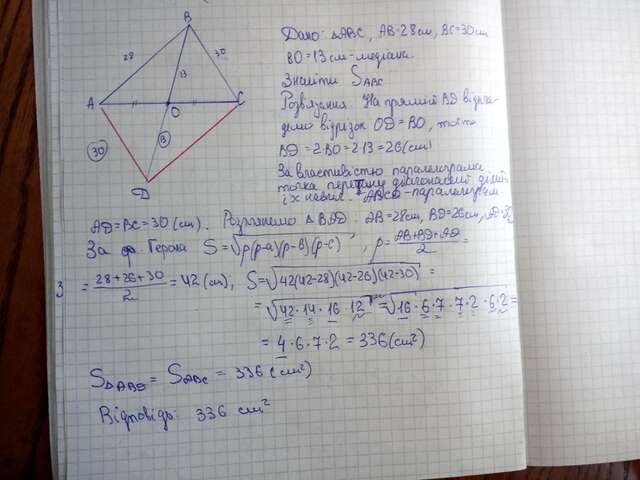 B
28
30
13
A
C
O
30
13
D
Дано: △ABC, AB=28см, BC=30см
BO=13см-медіана.
Знайти S_ABC
Розв'язання. На прямій BD відкла-
демо відрізок OD=BO, тоді
BD=2BO=2·13=26(см)
За властивістю паралелограма
точка перетину діагоналей ділить
їх навпіл. ABCD-паралелограм.
AD=BC=30(см). Розглянемо △BAD. AB=28см, BD=26см,
За ф. Герона S=√p(p-a)(p-b)(p-c), p=AB+BD+AD/2=
3
=28+26+30/2=42(см); S=√42(42-28)(42-26)(42-30)=
=√42·14·16·12=√16·6·7·7·2·6·2=
=4·6·7·2=336(см²)
S△ABD=S_ABC=336(см²)
Відповідь: 336 см²